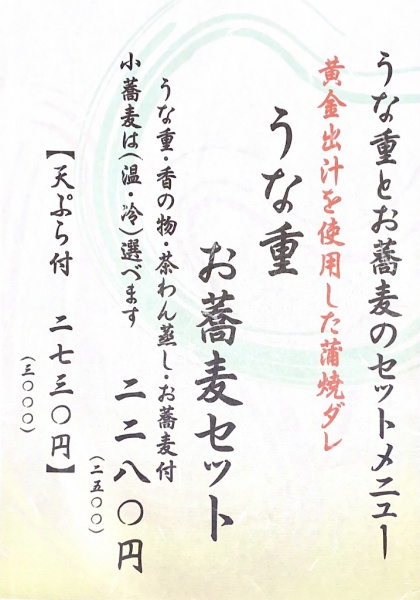 うな重とお蕎麦のセットメニュー
黄金出汁を使用した蒲焼ダレ
うな重
お蕎麦セット
うな重・香の物・茶わん蒸し・お蕎麦付
小蕎麦は(温・冷)選べます
二二八〇円
(二五〇〇)
【天ぷら付 二七三〇円】
(三〇〇〇)